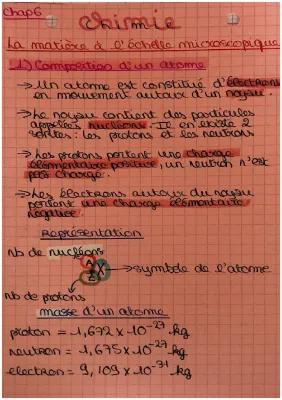 Chap6
Chimie
La matière à l'échelle microscopique
1) Composition d'un atome
→ Un atome est constitué d'électrons
en mouvement autour d'un noyau.
→ Le noyau contient des particules
appelées nucléons. Il en existe 2
sortes : les protons et les neutrons
→ Les protons portent une charge
élémentaire positive, un neutron n'est
pas chargé.
→ Les électrons autour du noyau
portent une charge élémentaire
négative.
Représentation
Nb de nucléons
A
X → symbole de l'atome
Z
Nb de protons
masse d'un atome
proton = 1,672 x 10⁻²⁷ kg
neutron = 1,675 x 10⁻²⁷ kg
electron = 9,109 x 10⁻³¹ kg